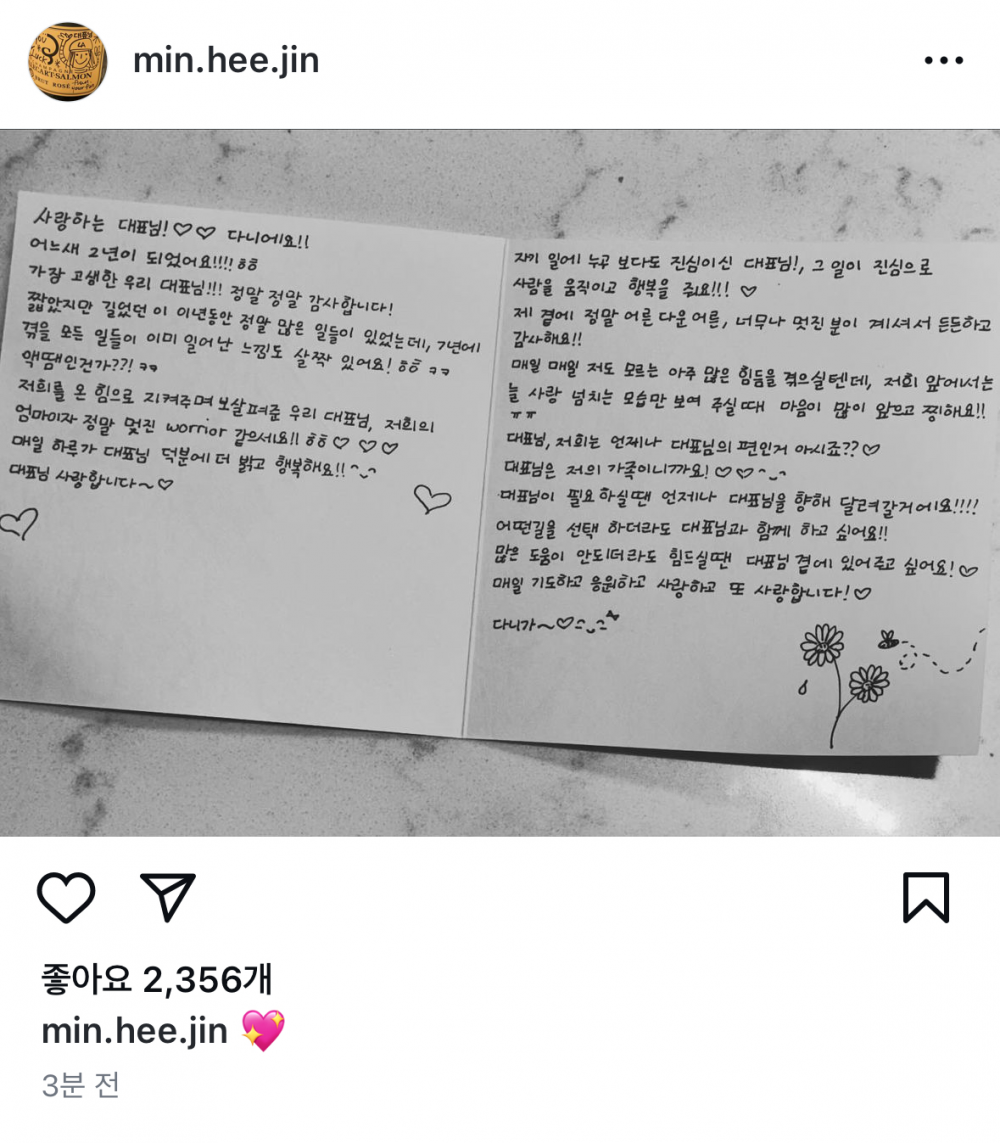 min.hee.jin
사랑하는 대표님!♡♡ 다니에요!!
어느새 2년이 되었어요!!!! ㅎㅎ
가장 고생한 우리 대표님!!! 정말 정말 감사합니다!
짧았지만 길었던 이 이년동안 정말 많은 일들이 있었는데, 7년에
겪을 모든 일들이 이미 일어난 느낌도 살짝 있어요! ㅎㅎ ㅋㅋ
액땜인건가??! ㅋㅋ
저희를 온 힘으로 지켜주며 보살펴준 우리 대표님, 저희의
엄마이자 정말 멋진 worrior 같으세요!! ㅎㅎ♡ ♡♡
매일 하루가 대표님 덕분에 더 밝고 행복해요!! ^_^
대표님 사랑합니다~♡
자기 일에 누구 보다도 진심이신 대표님!, 그 일이 진심으로
사람을 움직이고 행복을 줘요!!! ♡
제 곁에 정말 어른 다운 어른, 너무나 멋진 분이 계셔서 든든하고
감사해요!!
매일 매일 저도 모르는 아주 많은 힘듦을 겪으실텐데, 저희 앞에서는
늘 사랑 넘치는 모습만 보여 주실 때 마음이 많이 앞으고 찡해요!!
ㅠㅠ
대표님, 저희는 언제나 대표님의 편인거 아시죠??♡
대표님은 저의 가족이니까요!♡♡^_^
대표님이 필요하실땐 언제나 대표님을 향해 달려갈거에요!!!!
어떤길을 선택 하더라도 대표님과 함께 하고 싶어요!!
많은 도움이 안되더라도 힘드실땐 대표님 곁에 있어주고 싶어요!♡
매일 기도하고 응원하고 사랑하고 또 사랑합니다!♡
다니가~♡
좋아요 2,356개
min.hee.jin 💖
3분 전